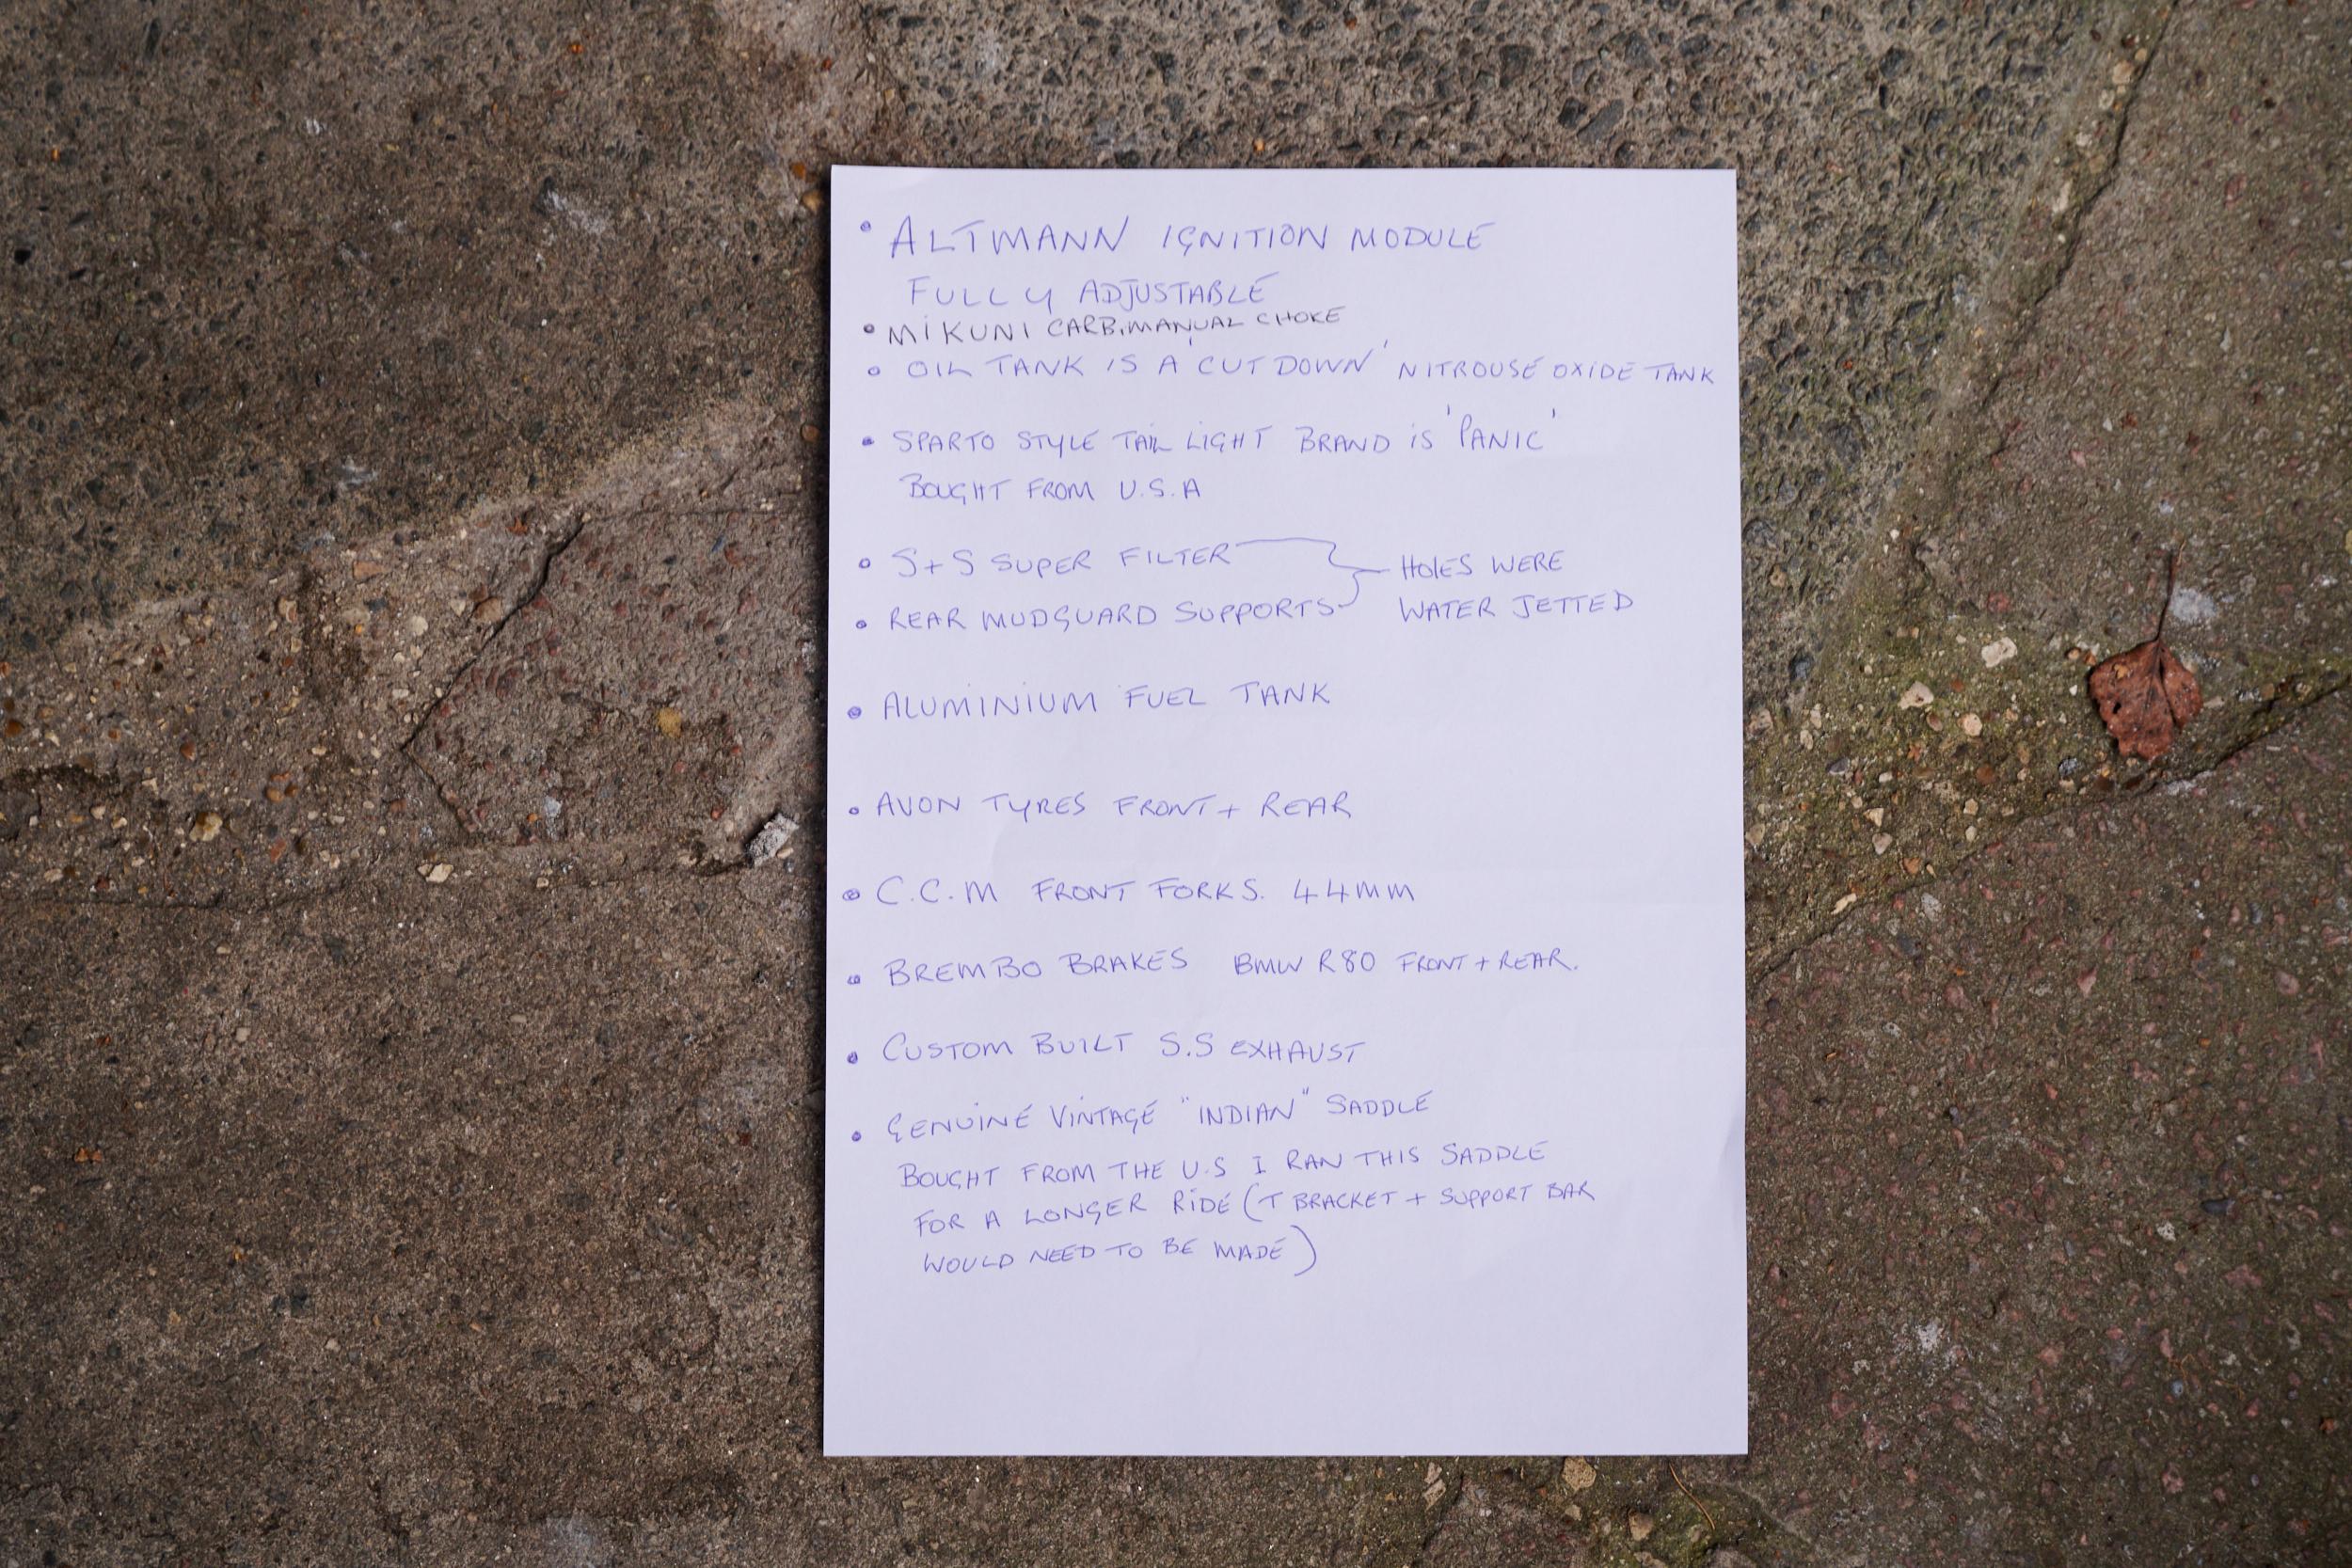 • ALTMANN IGNITION MODULE
FULLY ADJUSTABLE
• MIKUNI CARB. MANUAL CHOKE
• OIL TANK IS A 'CUT DOWN' NITROUSE OXIDE TANK
• SPARTO STYLE TAIL LIGHT BRAND IS 'PANIC'
BOUGHT FROM U.S.A
• S+S SUPER FILTER
• REAR MUDGUARD SUPPORTS
HOLES WERE
WATER JETTED
• ALUMINIUM FUEL TANK
• AVON TYRES FRONT + REAR
• C.C.M FRONT FORKS. 44MM
• BREMBO BRAKES BMW R80 FRONT + REAR.
• CUSTOM BUILT S.S EXHAUST
• GENUINE VINTAGE "INDIAN" SADDLE
BOUGHT FROM THE U.S I RAN THIS SADDLE
FOR A LONGER RIDE (T BRACKET + SUPPORT BAR
WOULD NEED TO BE MADE)